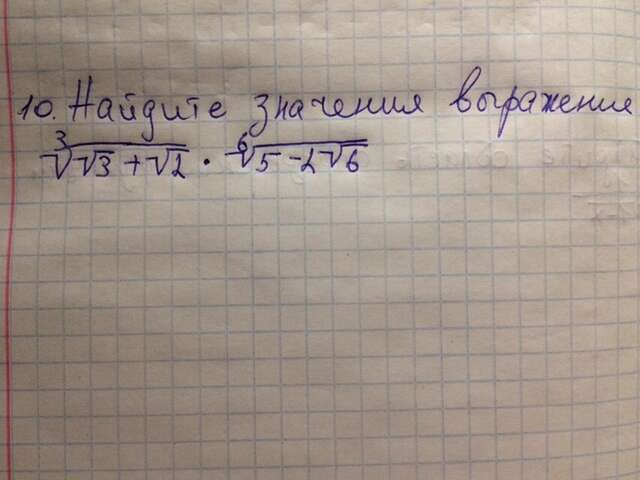 10. Найдите значения выражения
∛(√3 + √2) · ⁶√(5 - 2√6)